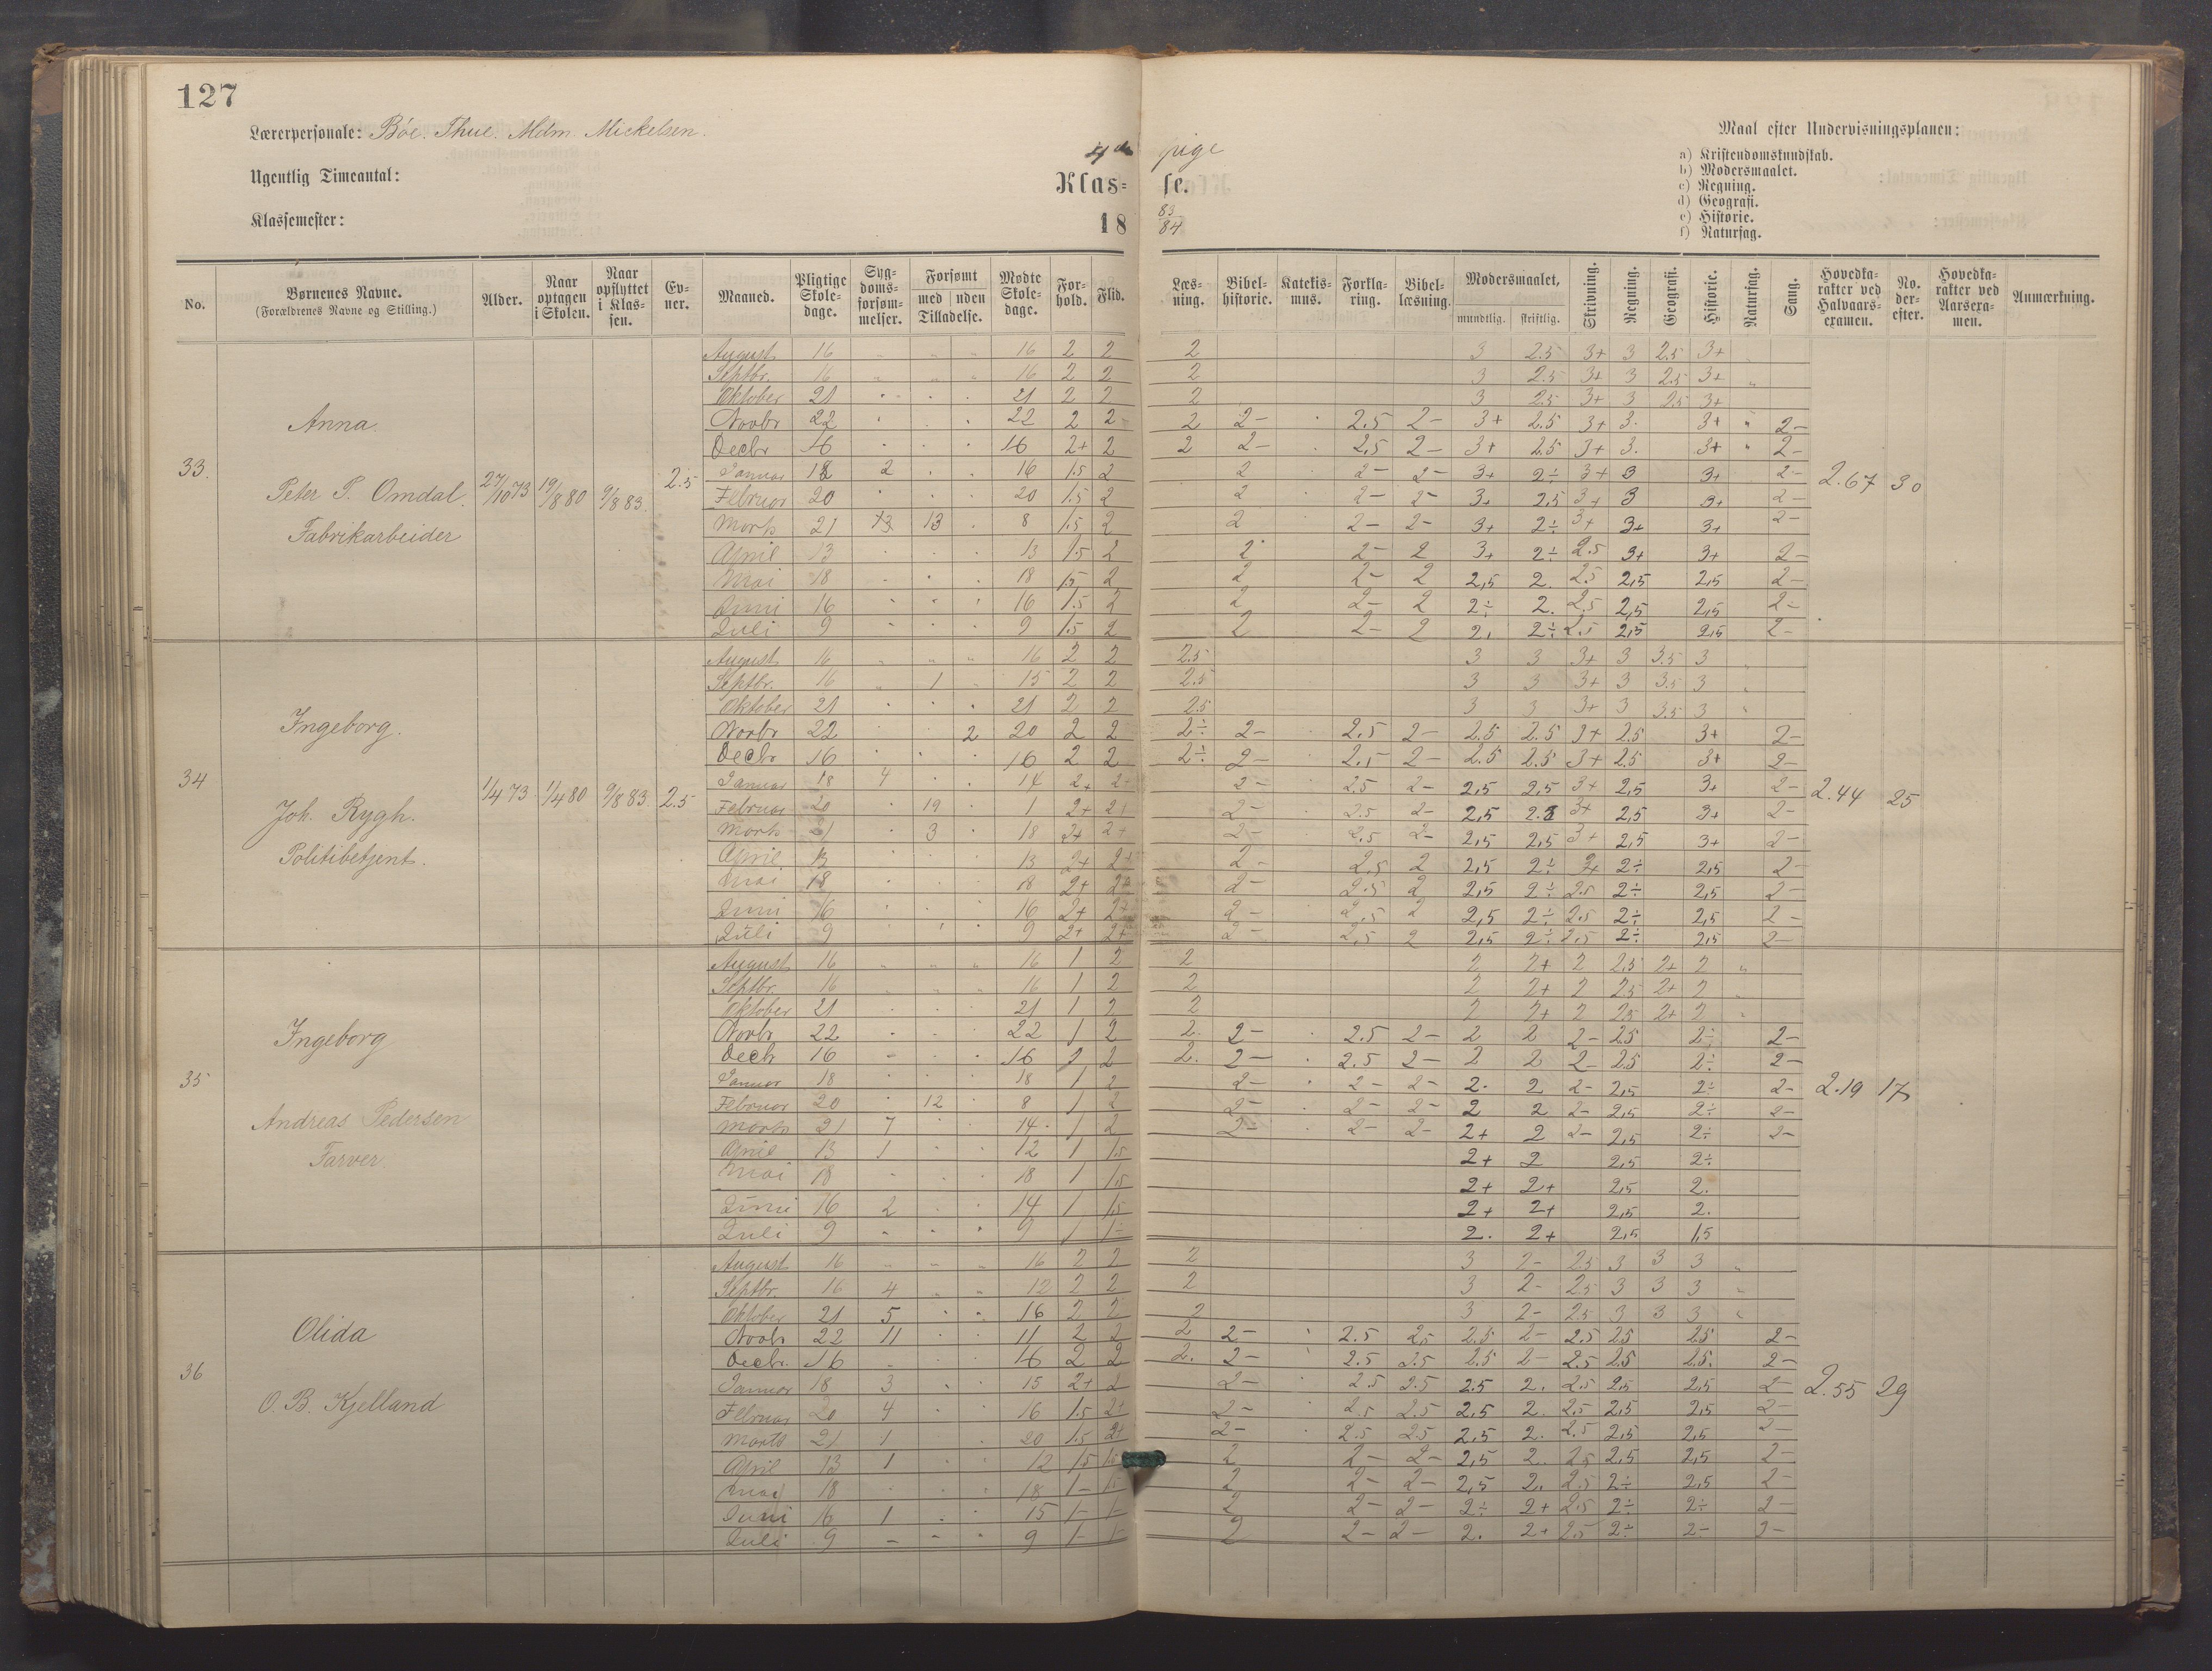 127
Lærerpersonale: Bóe. Thue. Mdm. Mickelsen.
Ugentlig Timeantal:
Klassemester:
4de pige
Klas= se.
18 83/84
Maal efter Undervisningsplanen:
a) Kristendomskundskab.
b) Modersmaalet.
c) Regning.
d) Geografi.
e) Historie.
f) Naturfag.
No. | Børnenes Navne. (Forældrenes Navne og Stilling.) | Alder. | Naar optagen i Skolen. | Naar opflyttet i Klassen. | Evner. | Maaned. | Pligtige Skoledage. | Sygdomsforsømmelser. | Forsømt med uden Tilladelse. | Mødte Skoledage. | Forhold. | Flid. | Læsning. | Bibelhistorie. | Katekismus. | Forklaring. | Bibellæsning. | Modersmaalet, mundtlig. skriftlig. | Skrivning. | Regning. | Geografi. | Historie. | Naturfag. | Sang. | Hovedkarakter ved Halvaarsexamen. | No. derefter. | Hovedkarakter ved Aarsexamen. | Anmærkning.
33. Anna. Peter P. Omdal. Fabrikarbeider 27/10 73 19/8 80 9/8 83. 2.5 2.67 30
August 16 " " " 16 2 2 2 3 2.5 3+ 3 2.5 3+ "
Septbr. 16 " " " 16 2 2 2 3 2.5 3+ 3 2.5 3+ "
Oktober 21 " . . 21 2 2 2 3 2.5 3+ 3 2.5 3+
Novbr 22 . . . 22 2 2- 2 2- . 2.5 2- 3+ 2.5 3+ 3. 3+ " 2-
Decbr 16 . . . 16 2+ 2 2 2- . 2.5 2- 3+ 2.5 3+ 3. 3+ " 2-
Januar 18 2 . . 16 1.5 2 2 2- 2- 3+ 2÷ 3+ 3 3+ 2-
Februar 20 . . . 20 1.5 2 2 2- 2- 3+ 2,5 3+ 3 3+ 2-
Marts 21 13 13 . 8 1.5 2 2 2- 2- 3+ 2÷ 3+ 3+ 3+ 2-
April 13 . . . 13 1.5 2 2 2- 2 3+ 2÷ 2.5 3+ 3+ 2-
Mai 18 . . . 18 1.5 2 2 2- 2 2,5 2. 2.5 2,5 2,5 2-
Juni 16 . . . 16 1.5 2 2 2- 2 2÷ 2. 2.5 2,5 2,5 2-
Juli 9 . . . 9 1.5 2 2 2- 2 2. 2÷ 2.5 2,5 2,5 2-
34 Ingeborg. Joh. Rygh. Politibetjent. 1/4 73. 1/4 80 9/8 83. 2.5 2.44 25
August 16 " " " 16 2 2 2.5 3 3 3+ 3 3.5 3 "
Septbr. 16 " 1 15 2 2 2.5 3 3 3+ 3 3.5 3 "
Oktober 21 . . . 21 2 2 2.5 3 3 3+ 3 3.5 3 "
Novbr 22 . . 2 20 2 2 2÷ 2- . 2.5 2- 2.5 2.5 3+ 2.5 3+ 2-
Decbr 16 . . . 16 2 2 2÷ 2- . 2.5 2- 2.5 2.5 3+ 2.5 3+ 2-
Januar 18 4 . . 14 2+ 2+ 2- 2.5 2- 2,5 2,5 3+ 2,5 3+ 2-
Februar 20 . 19 . 1 2+ 2+ 2- 2.5 2- 2,5 3+ 2,5 3+ 2-
Marts 21 . 3 . 18 2+ 2+ 2- 2.5 2- 2,5 2,5 3+ 2,5 3+ 2-
April 13 . . . 13 2+ 2+ 2- 2.5 2 2,5 2÷ 3+ 2÷ 2,5 2-
Mai 18 . . . 18 2+ 2+ 2- 2.5 2 2,5 2÷ 2.5 2÷ 2,5 2-
Juni 16 . . . 16 2+ 2+ 2- 2.5 2 2,5 2÷ 2.5 2÷ 2,5 2-
Juli 9 . . . 9 2+ 2+ 2- 2.5 2 2,5 2÷ 2.5 2÷ 2,5 2-
35 Ingeborg Andreas Pedersen Farver. 2.19 17
August 16 " " " 16 1 2 2 2 2+ 2 2.5 2+ 2 "
Septbr. 16 " " " 16 1 2 2 2 2+ 2 2.5 2+ 2 "
Oktober 21 . . . 21 1 2 2 2 2+ 2 2.5 2+ 2 "
Novbr 22 . . . 22 1 2 2. 2- . 2.5 2- 2 2 2- 2.5 2÷ 2-
Decbr 16 . . . 16 1 2 2. 2- . 2.5 2- 2 2 2- 2.5 2÷ 2-
Januar 18 . . . 18 1 2 2- . 2- 2- 2. 2 2- 2,5 2÷ 2-
Februar 20 . 12 . 8 1 2 2- . 2- 2- 2 2 2- 2,5 2÷ 2-
Marts 21 7 . . 14 1 2 2- . 2- 2- 2+ 2 2- 2,5 2÷ 2-
April 13 1 . . 12 1 1.5 2+ 2 2,5 2÷
Mai 18 . . . 18 1 1,5 2+ 2+ 2,5 2.
Juni 16 2 . . 14 1 1,5 2+ 2+ 2,5 2.
Juli 9 . . . 9 1 1÷ 2. 2+ 2,5 1,5
36 Olida O. B. Kjelland 2.55 29
August 16 " " " 16 2 2 2 3 2- 2.5 3 3 3 "
Septbr. 16 4 " " 12 2 2 2 3 2- 2.5 3 3 3 "
Oktober 21 5 . . 16 2 2 2 3 2- 2.5 3 3 3 "
Novbr 22 11 . . 11 2 2 2 2- . 2.5 2.5 2.5 2- 2.5 2.5 2.5 2-
Decbr. 16 . . . 16 2 2 2. 2- . 2.5 2.5 2.5 2- 2.5 2.5 2.5. 2-
Januar 18 3 . . 15 2+ 2 2- 2.5 2.5 2.5 2. 2.5 2,5 2,5 2-
Februar 20 4 . . 16 1.5 2+ 2- 2.5 2.5 2,5 2. 2.5 2,5 2,5 2-
Marts 21 1 . . 20 1.5 2+ 2- 2.5 2.5 2,5 2. 2.5 2,5 2,5 2-
April 13 1 . . 12 1.5 1.5 2 2- 2- 2,5 2. 2.5 2,5 2,5 2-
Mai 18 . . . 18 1- 1.5 2 2- 2- 2,5 2. 2.5 2÷ 2,5 2-
Juni 16 1 . . 15 1- 1- 2 2- 2- 2÷ 2+ 2.5 2÷ 2÷ 2-
Juli 9 - - . 9 1- 1- 2 2- 2- 2. 2+ 2.5 2÷ 2- 2-